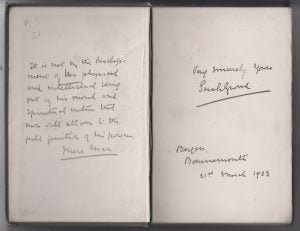 It is not by the develop-
ment of his physical
and intellectual being
but of his moral and
spiritual nature that
man will attain to the
full of his
Mere Man
Very Sincerely Yours
Sarah Grand
Bournemouth
21st March 1903